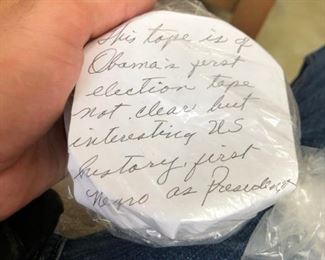 This tape is of
Obama's first
election tape
not clear but
interesting US
history, first
Negro as President